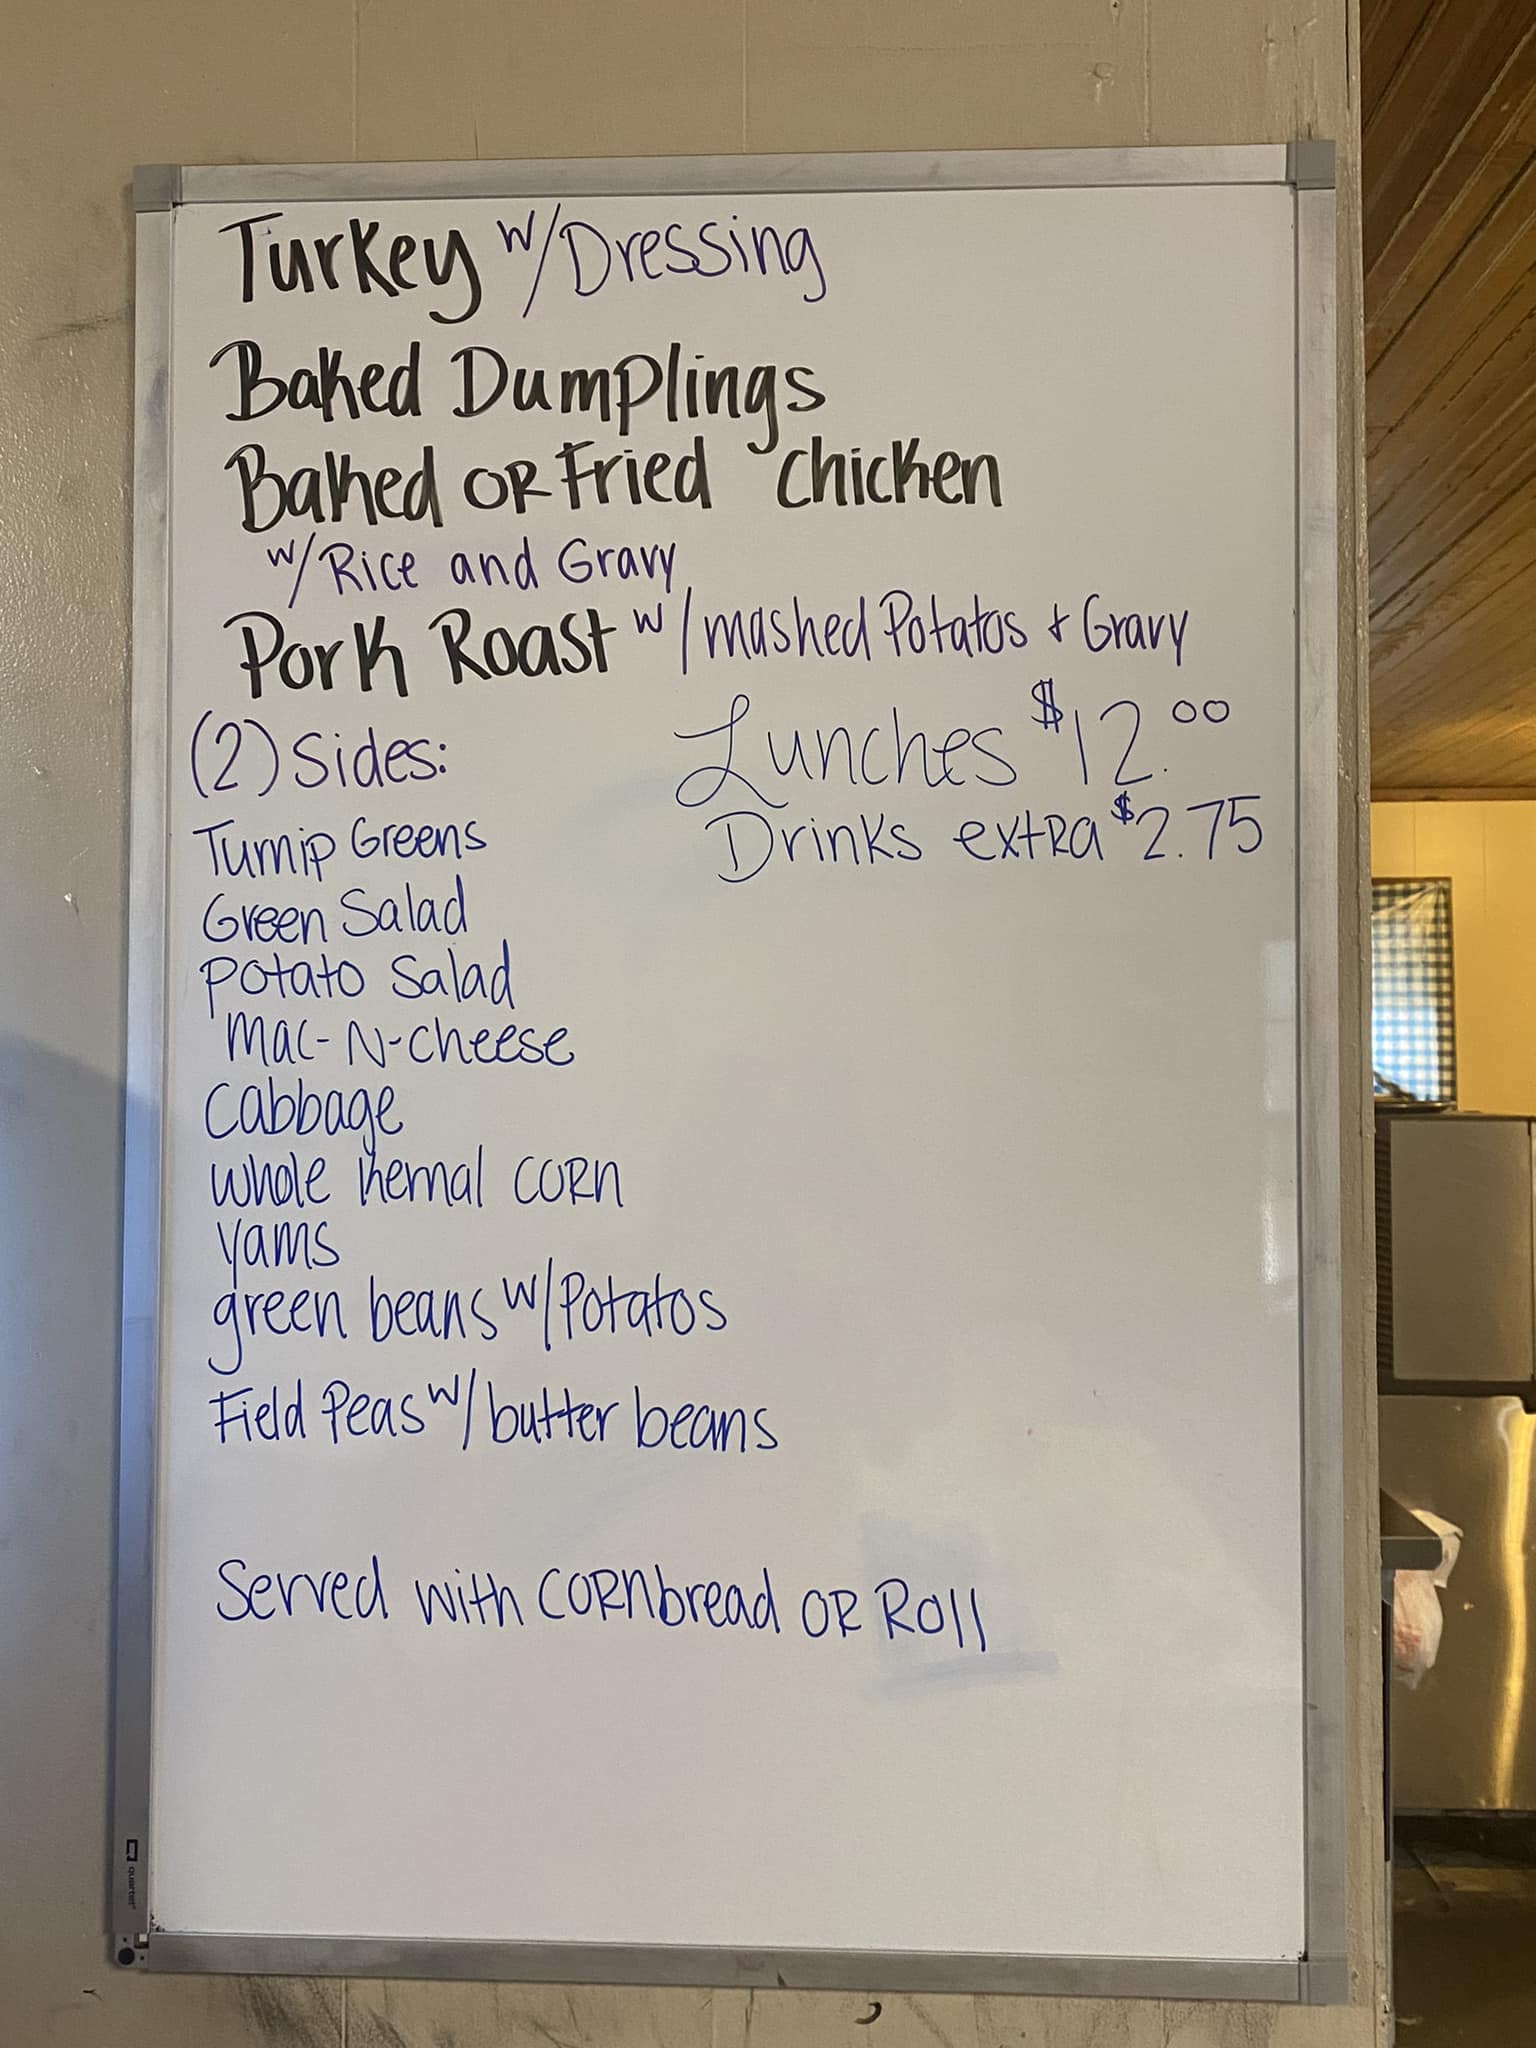 Turkey w/Dressing
Baked Dumplings
Baked OR Fried chicken
w/Rice and Gravy
Pork Roast w/mashed Potatos + Gravy
(2) Sides:
Lunches $12.00
Turnip Greens
Drinks extra $2.75
Green Salad
Potato Salad
mac-N-cheese
Cabbage
whole kernal corn
yams
green beans w/Potatos
Field Peas w/butter beans
Served with cornbread OR Roll
quartet